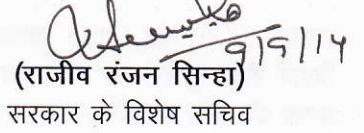 9/9/14
(राजीव रंजन सिन्हा)
सरकार के विशेष सचिव